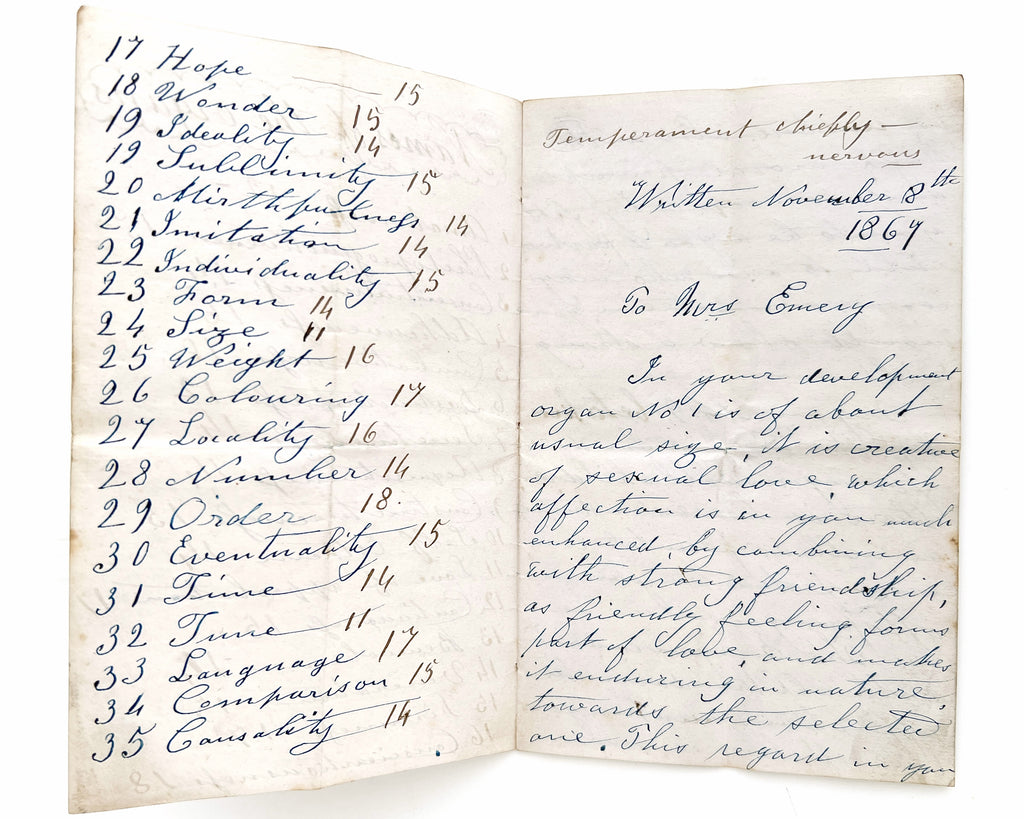 17 Hope 15
18 Wonder 15
19 Ideality 14
19 Sublimity 15
20 Mirthfulness 14
21 Imitation 14
22 Individuality 15
23 Form 14
24 Size 11
25 Weight 16
26 Colouring 17
27 Locality 16
28 Number 14
29 Order 18
30 Eventuality 15
31 Time 14
32 Tune 11
33 Language 17
34 Comparison 15
35 Causality 14
Temperament chiefly —
nervous
Written November 8th
1867
To Mrs Emery
In your development
organ No 1 is of about
usual size, it is creative
of sexual love which
affection is in you much
enhanced, by combining
with strong friendship,
as friendly feeling forms
part of love, and makes
it enduring in nature,
towards the selected
one. This regard in you